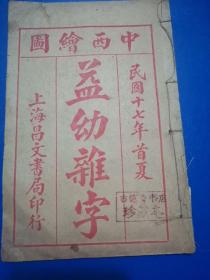 中西繪圖
民國十七年首夏
益幼雜字
上海昌文書局印行